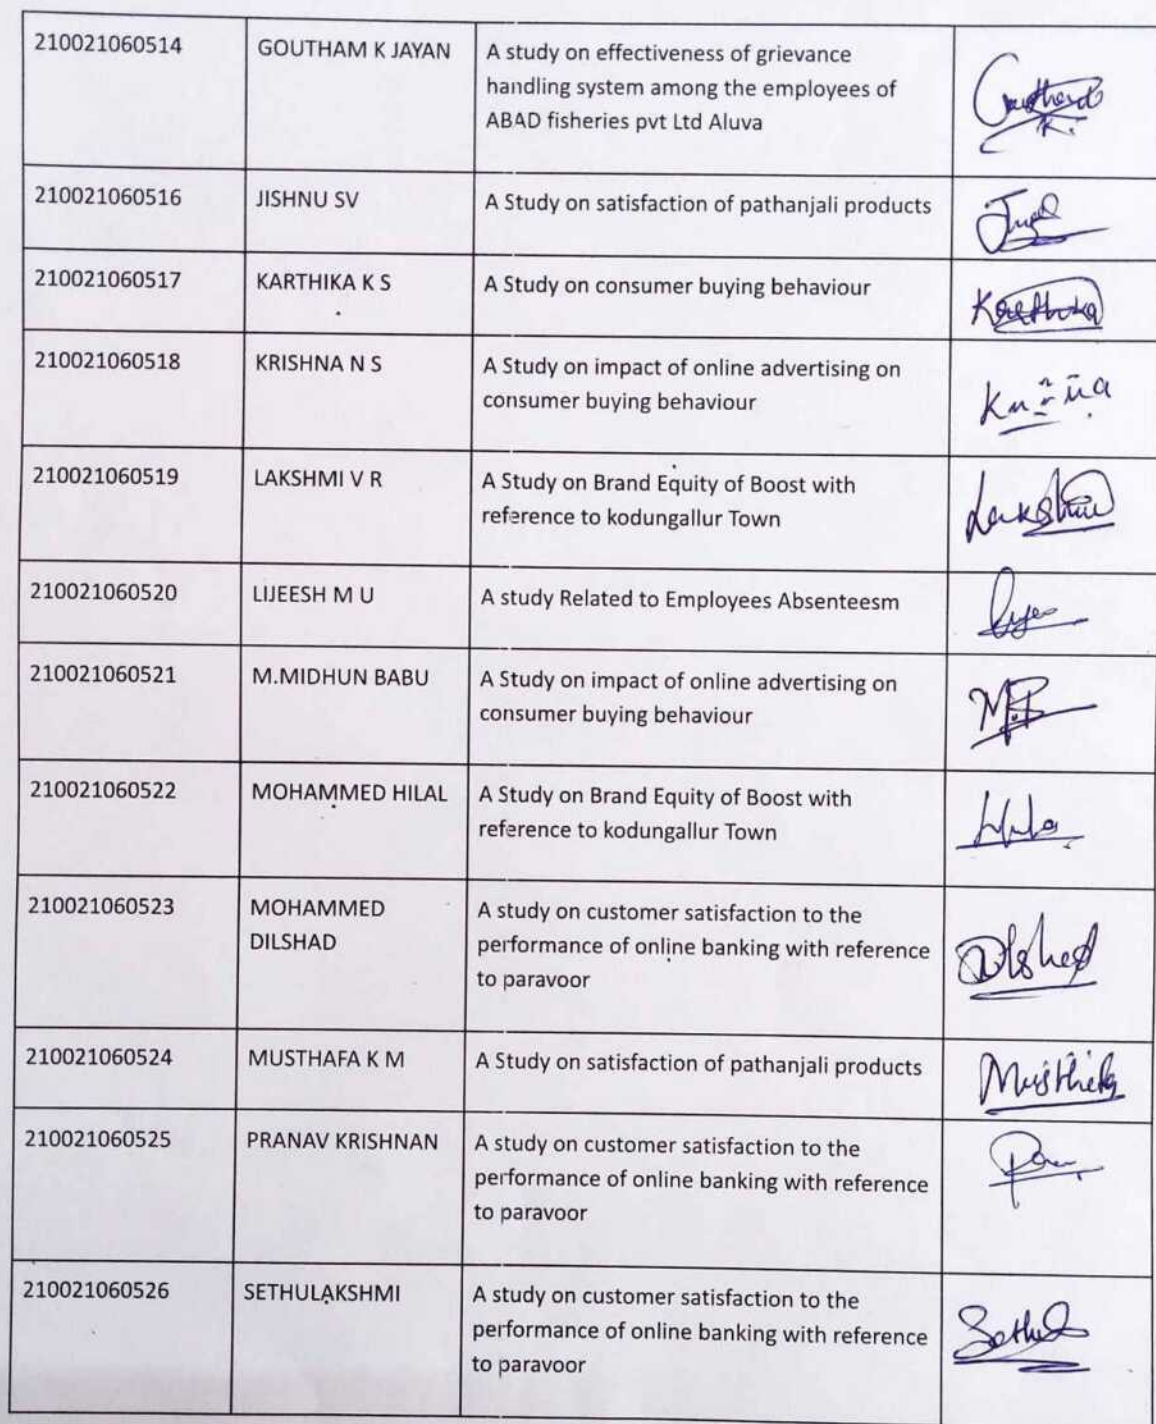 210021060514 GOUTHAM K JAYAN A study on effectiveness of grievance
handling system among the employees of
ABAD fisheries pvt Ltd Aluva
210021060516 JISHNU SV A Study on satisfaction of pathanjali products
210021060517 KARTHIKA K S A Study on consumer buying behaviour Karthika
210021060518 KRISHNA N S A Study on impact of online advertising on
consumer buying behaviour
210021060519 LAKSHMI V R A Study on Brand Equity of Boost with
reference to kodungallur Town
210021060520 LIJEESH M U A study Related to Employees Absenteesm
210021060521 M.MIDHUN BABU A Study on impact of online advertising on
consumer buying behaviour
210021060522 MOHAMMED HILAL A Study on Brand Equity of Boost with
reference to kodungallur Town
210021060523 MOHAMMED A study on customer satisfaction to the
DILSHAD performance of online banking with reference
to paravoor
210021060524 MUSTHAFA K M A Study on satisfaction of pathanjali products
210021060525 PRANAV KRISHNAN A study on customer satisfaction to the
performance of online banking with reference
to paravoor
210021060526 SETHULAKSHMI A study on customer satisfaction to the
performance of online banking with reference
to paravoor